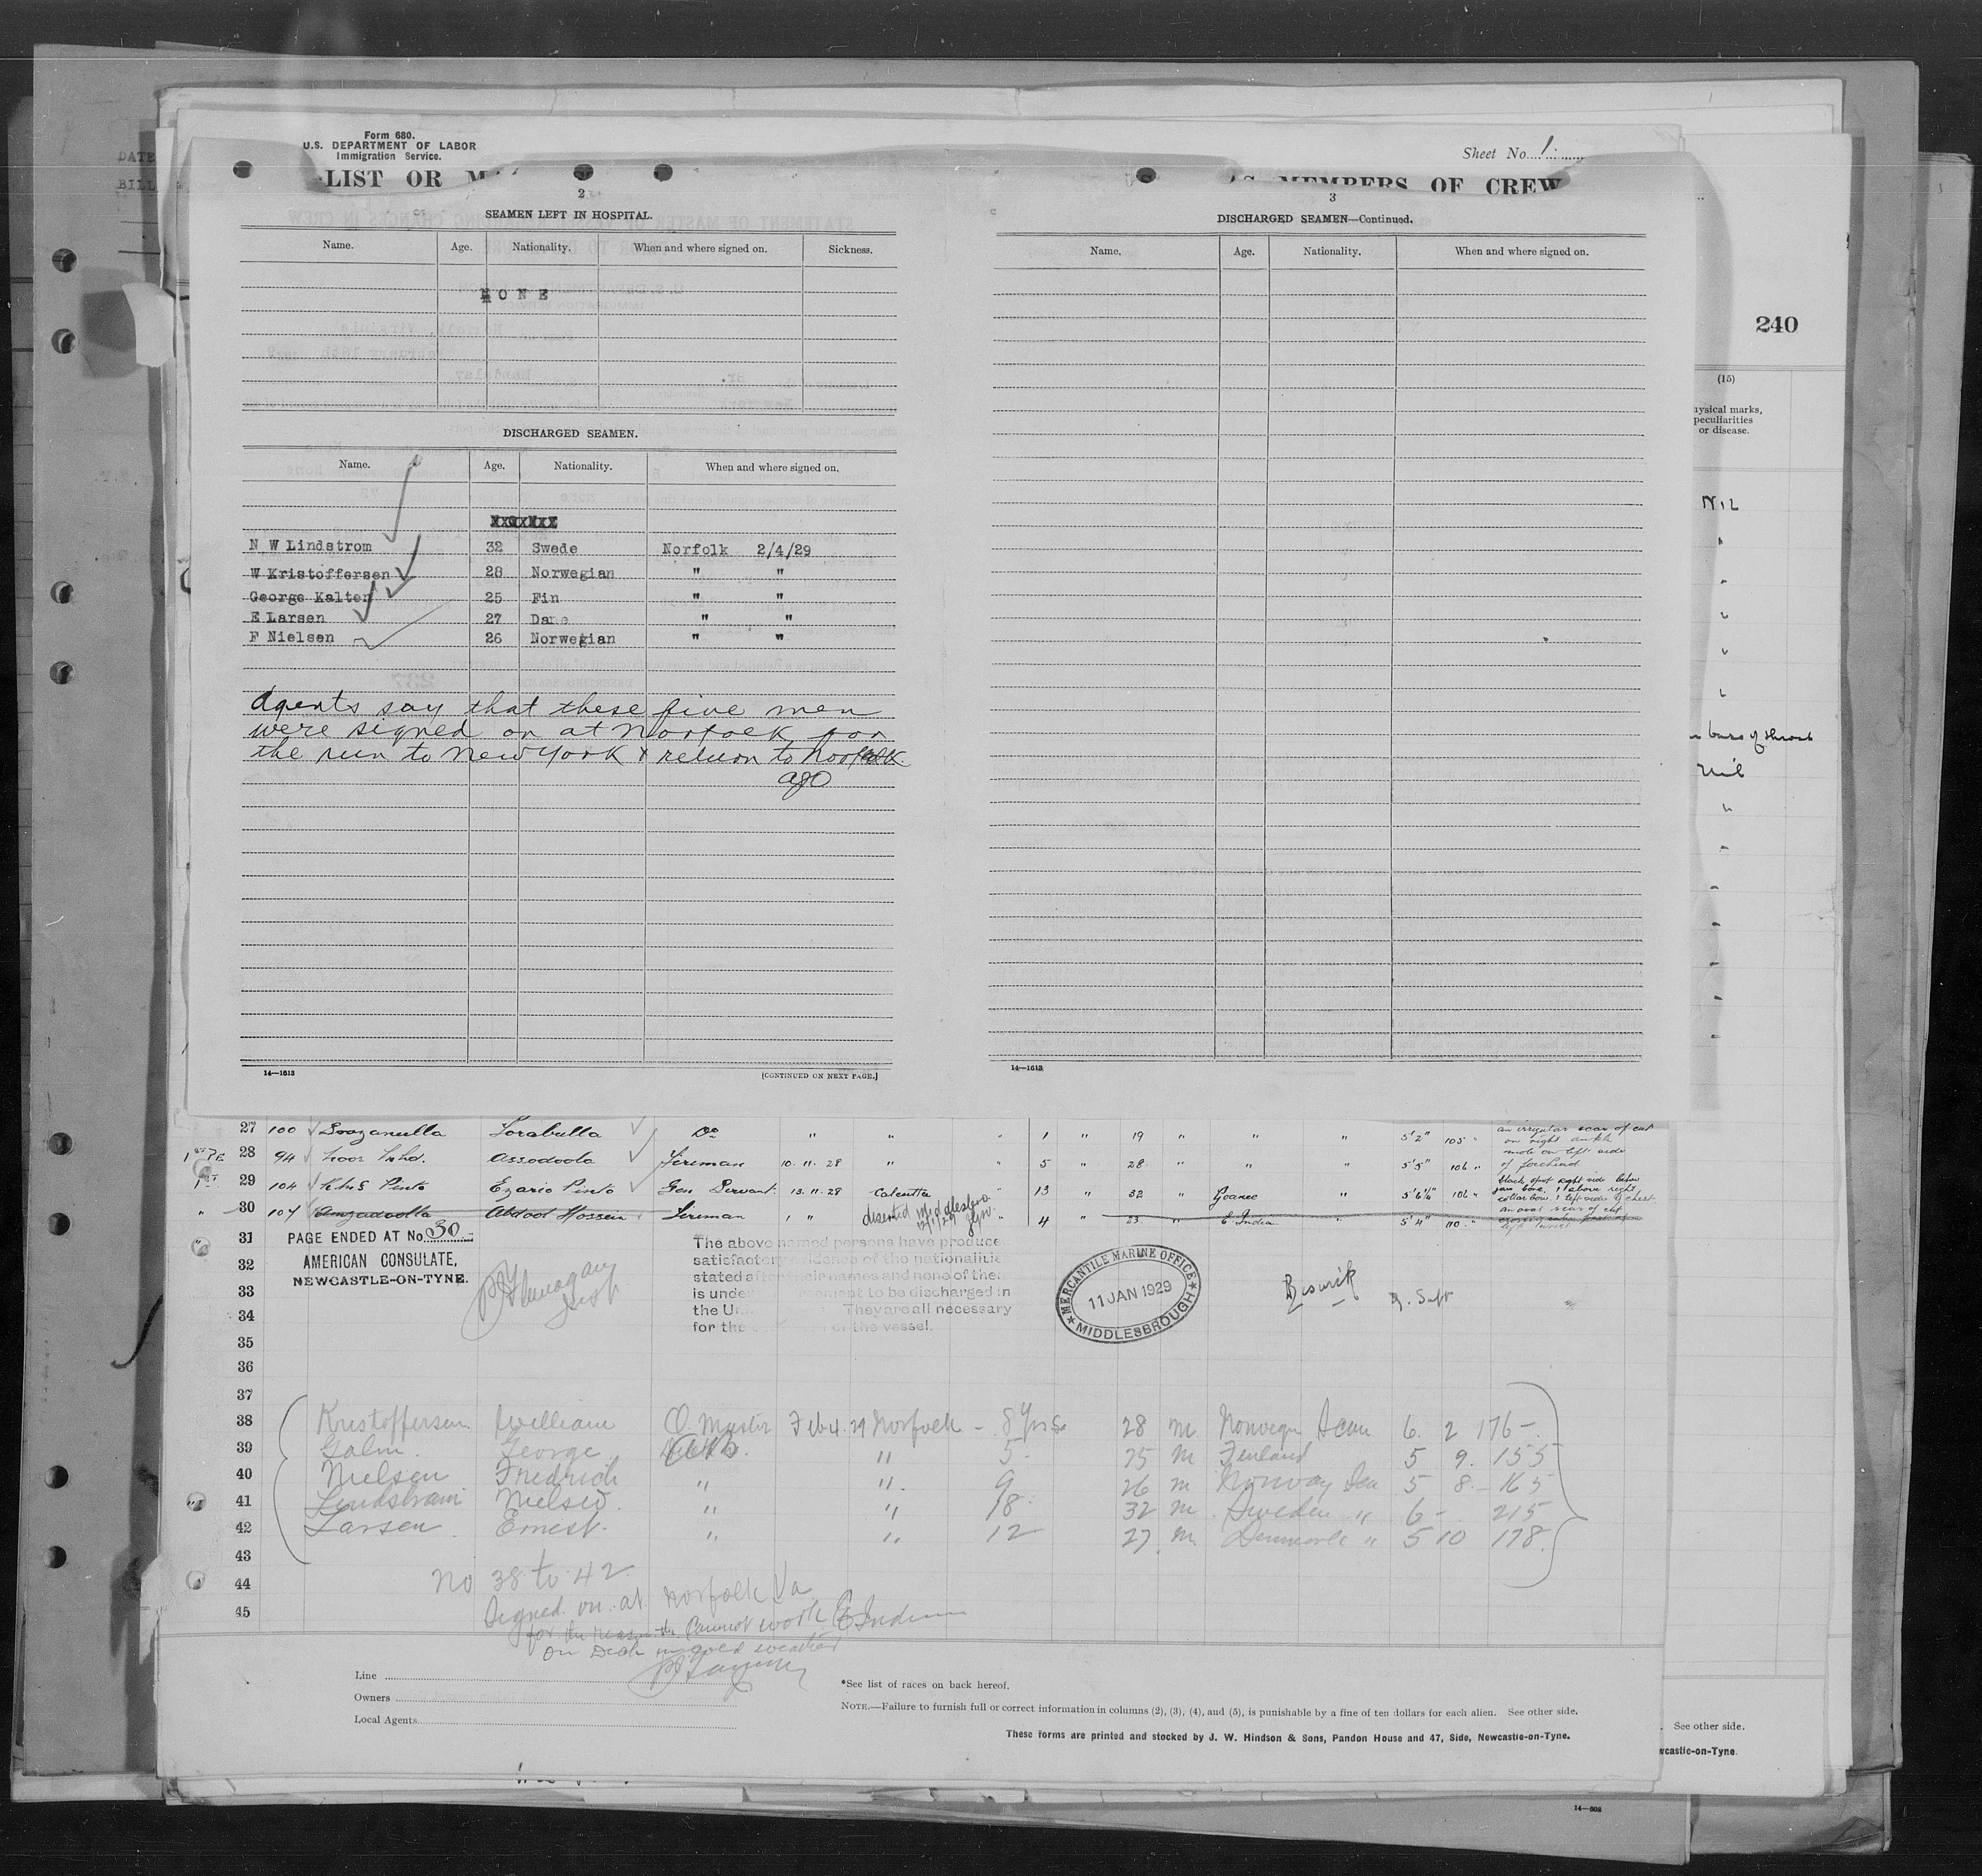 Form 680.
U.S. DEPARTMENT OF LABOR
Immigration Service.
Sheet No. 1
LIST OR
AS MEMBERS OF CREW
240
2
SEAMEN LEFT IN HOSPITAL.
Name. Age. Nationality. When and where signed on. Sickness.
NONE
DISCHARGED SEAMEN.
Name. Age. Nationality. When and where signed on.
N W Lindstrom 32 Swede Norfolk 2/4/29
W Kristoffersen 28 Norwegian " "
George Kalten 25 Fin " "
E Larsen 27 Dane " "
F Nielsen 26 Norwegian " "
Agents say that these five men
were signed on at Norfolk for
the run to New York & return to Norfolk.
14—1613
[CONTINUED ON NEXT PAGE.]
3
DISCHARGED SEAMEN—Continued.
Name. Age. Nationality. When and where signed on.
14—1613
(15)
physical marks,
peculiarities
or disease.
Nil
burs of throat
Nil
27 100 Torabulla Do " " " 1 " 19 " " " 5'2" 105 " an irregular scar of cut
on right ankle
28 94 Noor Mhd. Assodoola Fireman 10.11.28 " " 5 " 28 " " " 5'5" 106 " mole on left side
of forehead
29 104 Pinto Ezario Pinto Gen Servant 13.11.28 Calcutta " 13 " 32 " Goanee " 5'6¼" 106 " black spot right side below
jaw bone. 1 above right
collar bone. 1 left side of chest
30 107 Amzadoolla Abdool Hossein Fireman " " deserted Middlesbro 12/1/29 " 4 " 23 " E. India " 5'4" 110 " an oval scar of cut
31 PAGE ENDED AT No. 30
32 AMERICAN CONSULATE,
NEWCASTLE-ON-TYNE.
33
34
35
36
37
The above named persons have produced
satisfactory evidence of the nationalities
stated after their names and none of them
is under to be discharged in
the U They are all necessary
for the of the vessel.
MERCANTILE MARINE OFFICE
11 JAN 1929
MIDDLESBROUGH
Beswick
38 Kristoffersen William Q. Master Feb 4. 29 Norfolk - 8 yrs 28 m Norwegn Scan 6. 2 176-
39 Galm George " 5 25 m Finland 5 9. 155
40 Nielsen Fredrich " " 9 26 m Norway Scan 5 8.- 165
41 Lindstrom " " 18 32 m Sweden " 6 -. 215
42 Larsen Ernest. " " 12 27. m. Denmark " 5 10 178.
43
44
45
No 38 to 42
Signed on at Norfolk Va
for the reason the cannot work E Indian
on Deck in cold weather
Line
Owners
Local Agents
*See list of races on back hereof.
NOTE.—Failure to furnish full or correct information in columns (2), (3), (4), and (5), is punishable by a fine of ten dollars for each alien. See other side.
These forms are printed and stocked by J. W. Hindson & Sons, Pandon House and 47, Side, Newcastle-on-Tyne.
. See other side.
wcastle-on-Tyne.
14—508